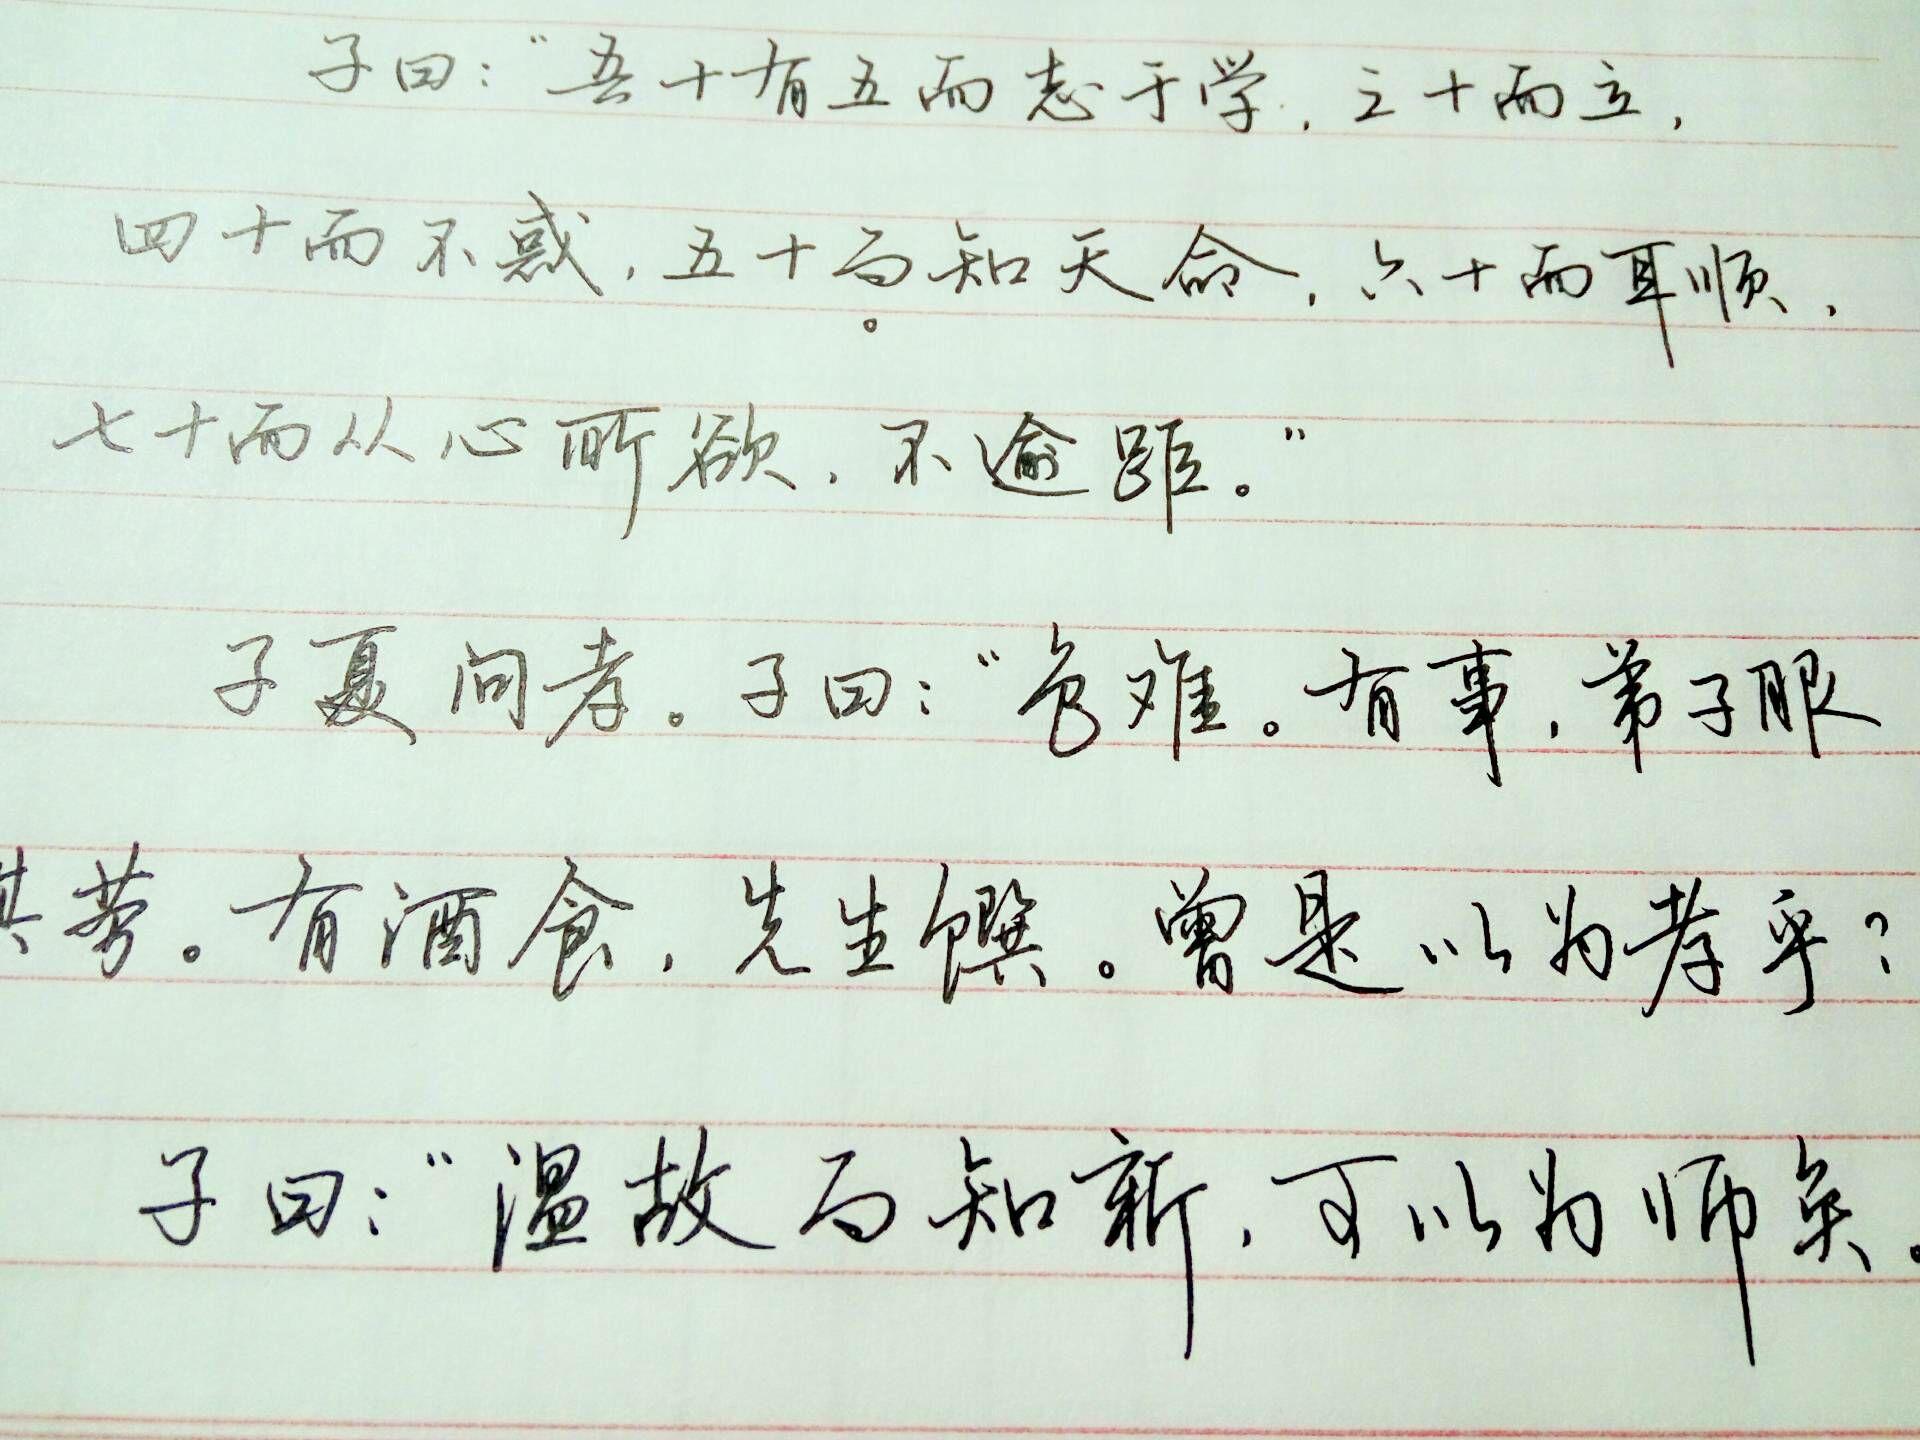 子曰：“吾十有五而志于学，三十而立，
四十而不惑，五十而知天命，六十而耳顺，
七十而从心所欲，不逾距。”
子夏问孝。子曰：“色难。有事，弟子服
其劳。有酒食，先生馔。曾是以为孝乎？
子曰：“温故而知新，可以为师矣。